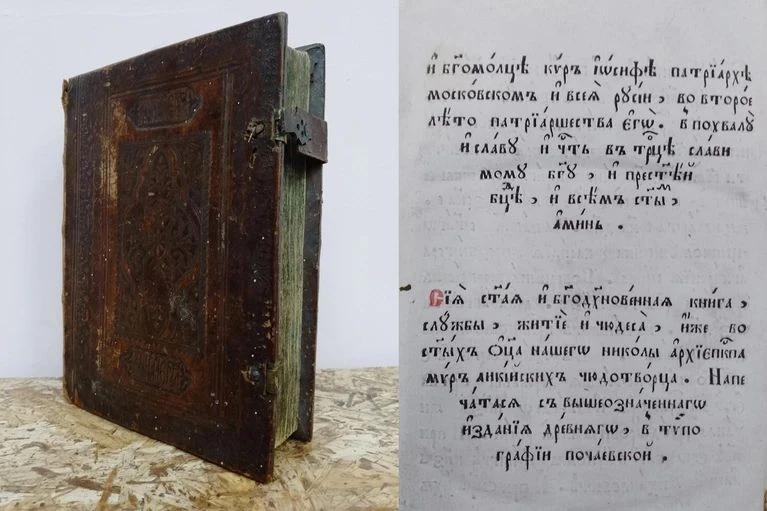 и҆ бг҃омо́лцѣ ку́ръ і҆ѡ́сифѣ патрїа́рхѣ
моско́вскомъ и҆ всеѧ̀ рꙋсі́и, во второ́е
лѣ́то патрїа́ршества є҆гѡ̀. в похвалꙋ̀
и҆ сла́вꙋ и҆ че́ть в трⷪ҇цѣ сла́ви
момꙋ бг҃ꙋ, и҆ прест҃ѣ́й
бц҃ѣ, и҆ всѣ́мъ ст҃ы́ⷨ,
а҆ми́нь.
Сїѧ̀ ст҃а́ѧ и҆ бг҃одꙋхнове́ннаѧ кни́га,
слꙋ́жбы, житїѐ и҆ чюдеса̀, и҆́же во
ст҃ы́хъ ѻ҆ц҃а̀ на́шегѡ нико́лы а҆рхїєпⷭ҇кпа
мѵ́ръ лики́йскихъ чюдотво́рца. Напе
ча́тасѧ съ вышеозначе́ннагѡ
и҆зда́нїѧ дре́внѧгѡ, в тѵпо
гра́фїи поча́евской.